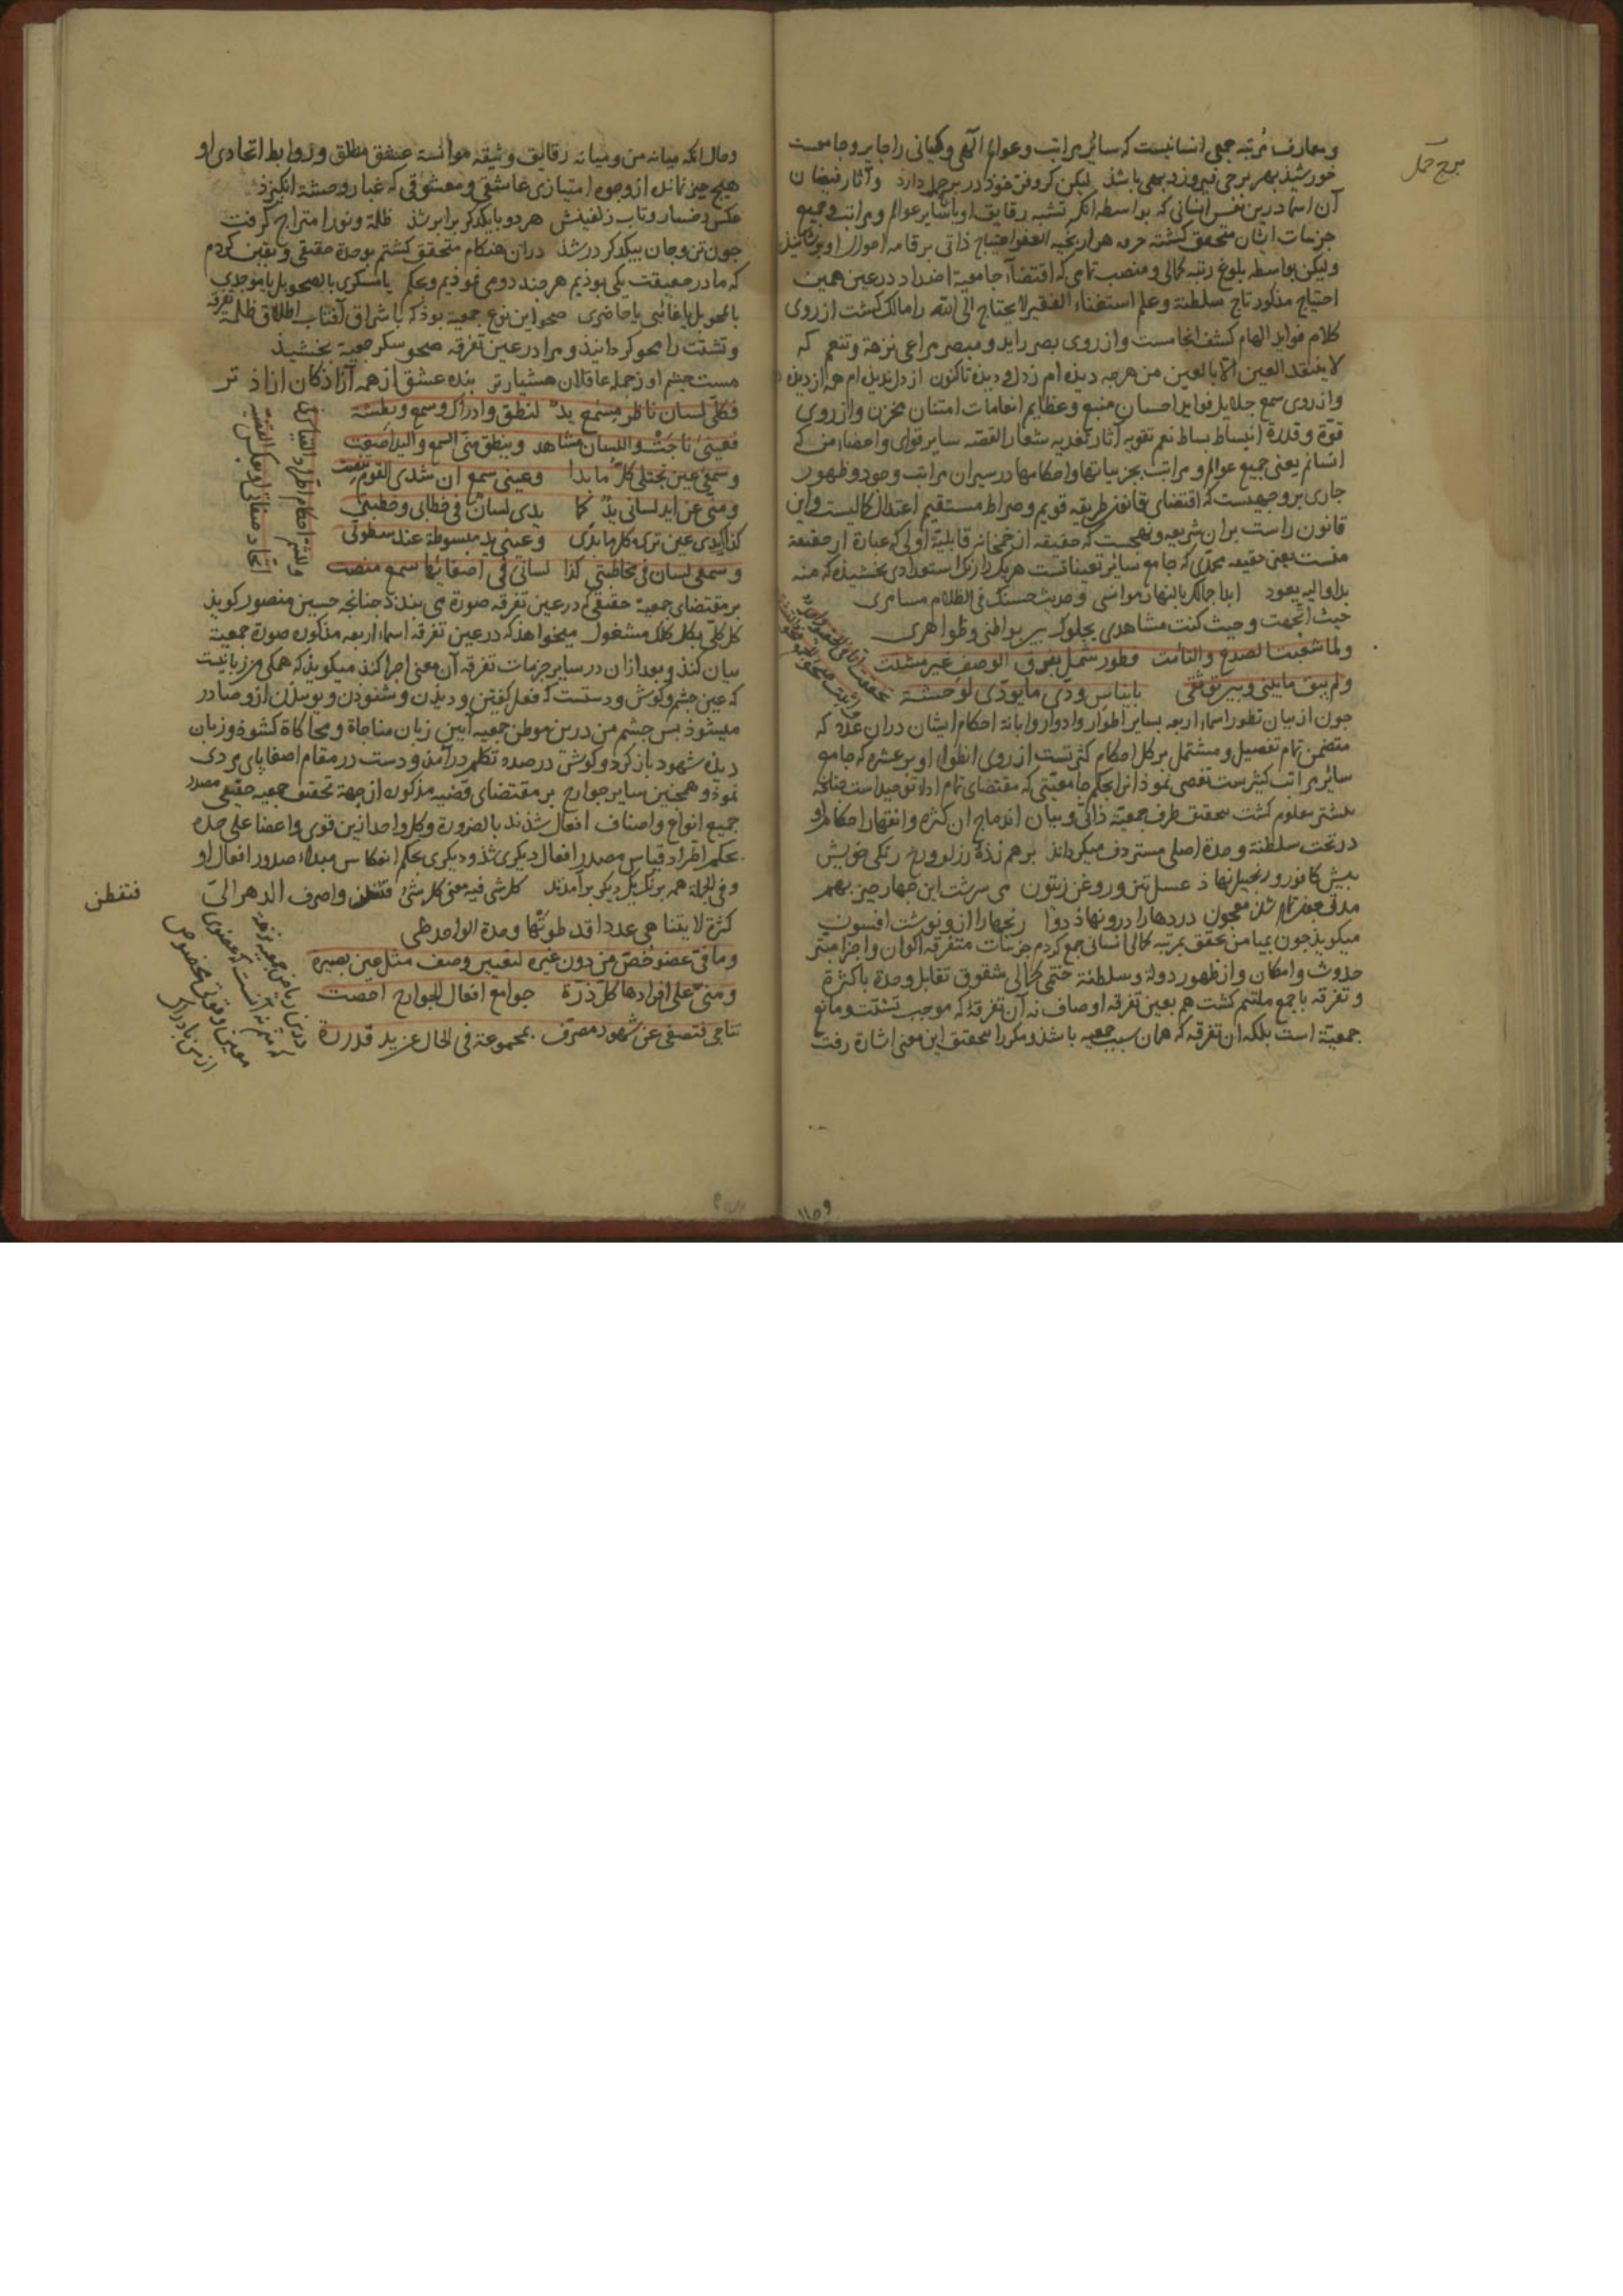 برج حمل
و معارف مرتبه جمعی انسانیست که سایر مراتب و عوالم الهی و کیانی را جابر و جامعست
خورشید بهر برجی فیروز و بهی باشد لیکن کر و فری خود در برج حمل دارد و آثار فیضان
آن اسما درین نفس انسانی که بواسطه آنکه تشبه رقایق او با سایر عوالم و مراتب و جمیع
جزییات ایشان متحقق کشته احتیاج ذاتی بر قامه احوال او
ولیکن بواسطه بلوغ رتبه کمالی و منصب تمامی که اقتضاء جامعیة اضداد در عین همین
احتیاج مذکور تاج سلطنة و علم استغناء الفقیر لا یحتاج الی الله را مالک کشت از روی
کلام فواید الهام کشف انجامست و از روی بصر راید و مبصر مراعی نزهة و تنعم که
لا ینتقد العین الا بالعین من هرچه دیده ام ز دل و دیده تاکنون از دل ندیده ام همه از دیده
و از روی سمع جلایل فواید احسان منبع و عظایم انعامات امتنان مخزن و از روی
قوة و قدرة انبساط بساط نعم تقویه آثار تغذیه شعار القصه سایر قوای و اعضاء من که
انسانم یعنی جمیع عوالم و مراتب بجزییاتها و احکامها در سیران مراتب وجود و ظهور
جاری بر وجهیست که اقتضای قانون طریقه قویم و صراط مستقیم اعتدال کمالیست و این
قانون راست بران شریعه و نهجست که حقیقه قابلیة اولی که عبارة از حقیقة
منست یعنی حقیقه محمدی که جامع سایر تعیناتست هر یک را رنک استعدادی بخشیده که منه
بدا و الیه یعود ابدا جمالک بالنهار موانسی و حدیث حسنک فی الظلام مسامری
حیث اتجهت و حیث کنت مشاهدی یجلوک بین بواطنی و ظواهری
ولما شعبت الصدع والتأمت فطور شمل بفرق الوصف غیر مشتت
ولم یبق ما بینی و بین توثقی بایناس ودی ما یودی لوحشة
چون از بیان تطور اسماء اربعه بسایر اطوار و ادوار و ابانة احکام ایشان دران عدد که
متضمن تمام تفصیل و مشتمل بر کل احکام کثرتست از روی انطواء او بر عشره که جامع
سایر مراتب کثیرست تفصی نمود آنرا بحکم جامعیتی که مقتضای تمام اداء توحیدست چنانچه
پیشتر معلوم کشت بتحقیق طرف جمعیة ذاتی و بیان اندماج آن کثرة و انقهار احکام او
در تحت سلطنة وحدة اصلی مستردف میکرداند بر هم زده زلف و رخ زنکی خویش
پیش کافور و زنجبیل نهاذ عسل و تین و روغن زیتون می سرشت این چهار چیز بهم
تمام شد معجون دردها را درو نهاذ دوا رنجها را ازو نوشت افسون
میکوید چون بمیامن تحقق بمرتبه کمالی انسانی جمع کردم جزییات متفرقه اکوان و اجزاء منتثر
حدوث و امکان و از ظهور دولة و سلطنة ختمی کمالی شقوق تقابل وحدة با کثرة
و تفرقه با جمع ملتئم کشت هم بعین تفرقه اوصاف نه آن تفرقه که موجب تشتت و مانع
جمعیة است بلکه آن تفرقه که همان سبب جمعیه باشد و مکررا بتحقیق این معنی اشارة رفت
و حال آنکه میانه من و میانه رقایق وثیقه موانسة عشق مطلق و روابط اتحادی او
هیچ چیز نمانده از وجوه امتیازی عاشقی و معشوقی که غبار وحشة انکیزذ
عکس رخسار و تاب زلفینش هر دو با یکدکر برابر شذ ظلمة و نور امتزاج کرفت
چون تن و جان بیکدکر در شذ دران هنکام متحقق کشتم بوحدة حقیقی و یقین کردم
که ما در حقیقت یکی بوذیم هرچند دو می نموذیم و بحکم یا سکری بالصحو بل یا موجدی
بالمحو بل یا غائبی یا حاضری صحو این نوع جمعیة بوذ که باشراق آفتاب اطلاق ظلمة تفرقه
و تشتت را محو کردانیذ و مرا در عین تفرقه صحو سکر جمعیة بخشیذ
مست چشم او ز جمله عاقلان هشیارتر بنده عشق از همه آزاذکان آزاذ تر
فکلی لسان ناظر مسمع ید لنطق و ادراک و سمع و بطشة
فعینی ناجت واللسان مشاهد و ینطق منی السمع والید اصغت
و سمعی عین تجتلی کل ما بدا و عینی سمع ان شدی القوم تنصت
و منی عن اید لسانی ید کما یدی لسان فی خطابی و خطبتی
کذاک یدی عین تری کل ما بدی و عینی ید مبسوطة عند سطوتی
و سمعی لسان فی مخاطبتی کذا لسانی فی اصغائها سمع منصت
وللشم احکام اطراد القیاس فی
اتحاد صفاتی او بعکس القضیة
بر مقتضای جمعیة حقیقی که در عین تفرقه صورة می بندذ چنانچه حسین منصور کوید
کل کلی بکل کلک مشغول میخواهذ که در عین تفرقه اسماء اربعه مذکوره صورة جمعیة
بیان کند و بعد ازان در سایر جزییات تفرقه آن معنی اجرا کند میکوید که همکی من زبانیست
که عین چشم و کوش و دستست که فعل کفتن و دیدن و شنوذن و یوسیدن ازو صادر
میشوذ پس چشم من درین موطن جمعیه آیین زبان مناجاة و محاکاة کشوذ و زبان
دیده شهود باز کرد و کوش در صدد تکلم درآمذ و دست در مقام اصغا پای مردی
نموذ و همچنین سایر جوارح بر مقتضای قضیه مذکوره از جهة تحقق جمعیه حقیقی مصدر
جمیع انواع و اصناف افعال شذند بالضرورة و کل واحد ازین قوی و اعضا علی حده
بحکم اطراد قیاس مصدر افعال دیکری شذ و دیکری بحکم انعکاس مبداء صدور افعال او
و فی الجمله همه برنک یکدیکر برآمدند کل شی فیه معنی کل شئ فتفطن واصرف الذهن الیّ
فتفطن
کثرة لا یتناهی عددا قد طوتها وحدة الواحد طی
و ما فیّ عضو خص من دون غیره لتعیین وصف مثل عین بصیرة
و منی علی افرادها کل ذرة جوامع افعال الجوارح احصت
تناجی فتصغی عن شهود مصرف بمجموعة فی الحال عن ید قدرة